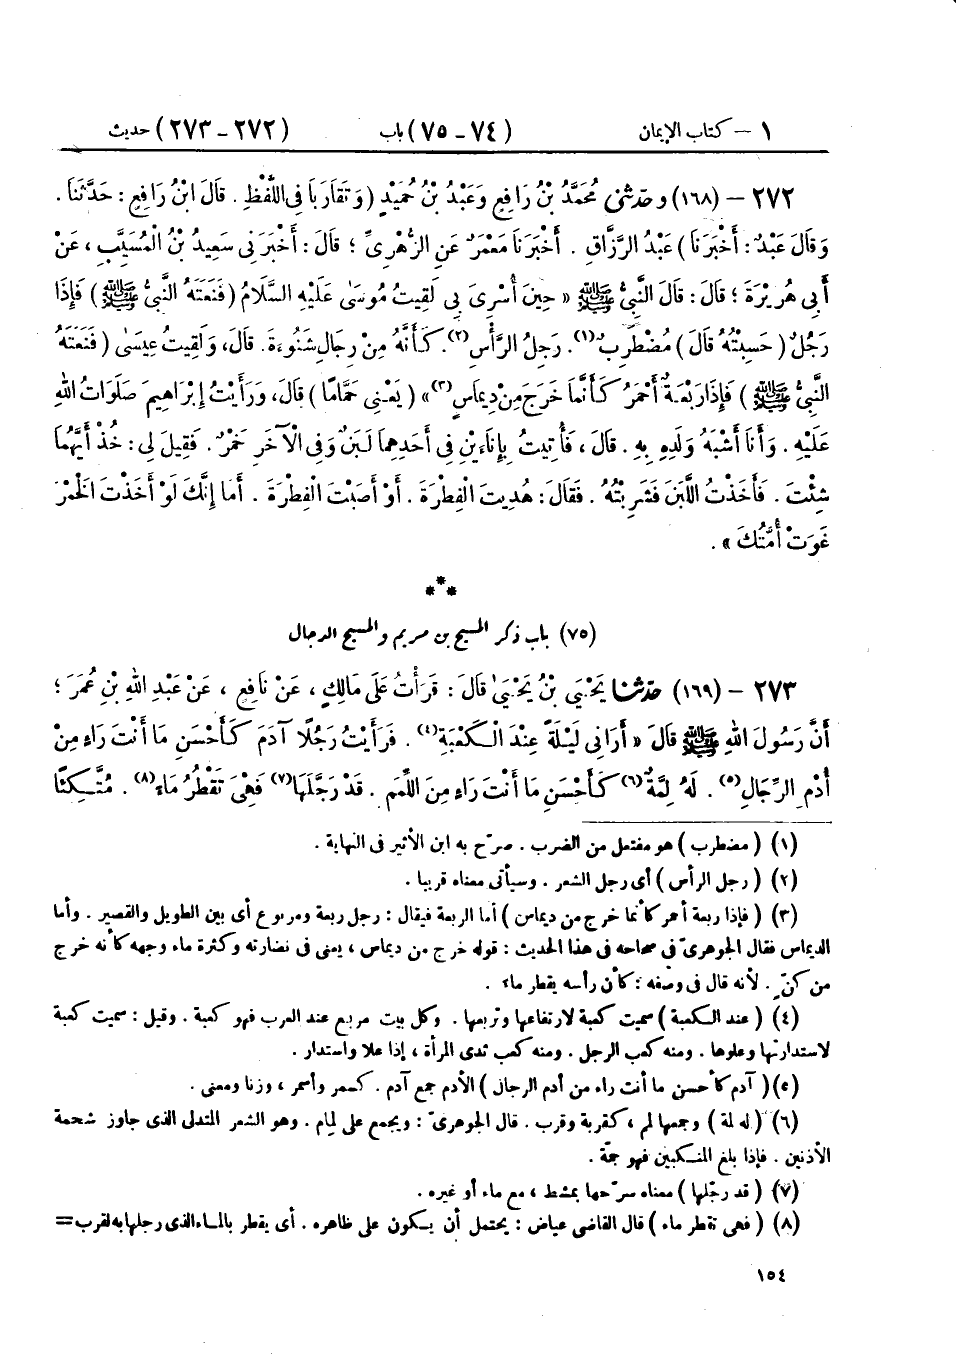 ١ – كتاب الإيمان (٧٤ – ٧٥) باب (٢٧٢ – ٢٧٣) حديث
٢٧٢ – (١٦٨) وحدثني مُحَمَّدُ بْنُ رَافِعٍ وَعَبْدُ بْنُ حُمَيْدٍ (وَتَقَارَبَا فِي اللَّفْظِ. قَالَ ابْنُ رَافِعٍ: حَدَّثَنَا.
وَقَالَ عَبْدٌ: أَخْبَرَنَا) عَبْدُ الرَّزَّاقِ. أَخْبَرَنَا مَعْمَرٌ عَنِ الزُّهْرِيِّ؛ قَالَ: أَخْبَرَنِي سَعِيدُ بْنُ الْمُسَيَّبِ، عَنْ
أَبِي هُرَيْرَةَ؛ قَالَ: قَالَ النَّبِيُّ ﷺ «حِينَ أُسْرِيَ بِي لَقِيتُ مُوسَىٰ عَلَيْهِ السَّلَامُ (فَنَعَتَهُ النَّبِيُّ ﷺ) فَإِذَا
رَجُلٌ (حَسِبْتُهُ قَالَ) مُضْطَرِبٌ(١). رَجِلُ الرَّأْسِ(٢). كَأَنَّهُ مِنْ رِجَالِ شَنُوءَةَ. قَالَ، وَلَقِيتُ عِيسَىٰ (فَنَعَتَهُ
النَّبِيُّ ﷺ) فَإِذَا رَبْعَةٌ أَحْمَرُ كَأَنَّمَا خَرَجَ مِنْ دِيمَاسٍ(٣)» (يَعْنِي حَمَّامًا) قَالَ، وَرَأَيْتُ إِبْرَاهِيمَ صَلَوَاتُ اللهِ
عَلَيْهِ. وَأَنَا أَشْبَهُ وَلَدِهِ بِهِ. قَالَ، فَأُتِيتُ بِإِنَاءَيْنِ فِي أَحَدِهِمَا لَبَنٌ وَفِي الْآخَرِ خَمْرٌ. فَقِيلَ لِي: خُذْ أَيَّهُمَا
شِئْتَ. فَأَخَذْتُ اللَّبَنَ فَشَرِبْتُهُ. فَقَالَ: هُدِيتَ الْفِطْرَةَ. أَوْ أَصَبْتَ الْفِطْرَةَ. أَمَا إِنَّكَ لَوْ أَخَذْتَ الْخَمْرَ
غَوَتْ أُمَّتُكَ».
***
(٧٥) باب ذكر المسيح بن مريم والمسيح الدجال
٢٧٣ – (١٦٩) حدثنا يَحْيَىٰ بْنُ يَحْيَىٰ قَالَ: قَرَأْتُ عَلَى مَالِكٍ، عَنْ نَافِعٍ، عَنْ عَبْدِ اللهِ بْنِ عُمَرَ؛
أَنَّ رَسُولَ اللهِ ﷺ قَالَ «أَرَانِي لَيْلَةً عِنْدَ الْكَعْبَةِ(٤). فَرَأَيْتُ رَجُلًا آدَمَ كَأَحْسَنِ مَا أَنْتَ رَاءٍ مِنْ
أُدْمِ الرِّجَالِ(٥). لَهُ لِمَّةٌ(٦) كَأَحْسَنِ مَا أَنْتَ رَاءٍ مِنَ اللِّمَمِ. قَدْ رَجَّلَهَا(٧) فَهِيَ تَقْطُرُ مَاءً(٨). مُتَّكِئًا
(١) (مضطرب) هو مفتعل من الضرب. صرّح به ابن الأثير في النهاية.
(٢) (رجل الرأس) أي رجل الشعر. وسيأتي معناه قريبا.
(٣) (فإذا ربعة أحمر كأنما خرج من ديماس) أما الربعة فيقال: رجل ربعة ومربوع أي بين الطويل والقصير. وأما
الديماس فقال الجوهريّ في صحاحه في هذا الحديث: قوله خرج من ديماس، يعني في نضارته وكثرة ماء وجهه كأنه خرج
من كنّ. لأنه قال في وصفه: كأن رأسه يقطر ماء.
(٤) (عند الكعبة) سميت كعبة لارتفاعها وتربعها. وكل بيت مربع عند العرب فهو كعبة. وقيل: سميت كعبة
لاستدارتها وعلوها. ومنه كعب الرجل. ومنه كعب ثدي المرأة، إذا علا واستدار.
(٥) (آدم كأحسن ما أنت راء من أدم الرجال) الأدم جمع آدم. كسمر وأسمر، وزنا ومعنى.
(٦) (له لمة) وجمعها لمم، كقربة وقرب. قال الجوهريّ: ويجمع على لِمام. وهو الشعر المتدلي الذي جاوز شحمة
الأذنين. فإذا بلغ المنكبين فهو جمّة.
(٧) (قد رجّلها) معناه سرّحها بمشط، مع ماء أو غيره.
(٨) (فهي تقطر ماء) قال القاضي عياض: يحتمل أن يكون على ظاهره. أي يقطر بالماء الذي رجلها به لقرب=
١٥٤